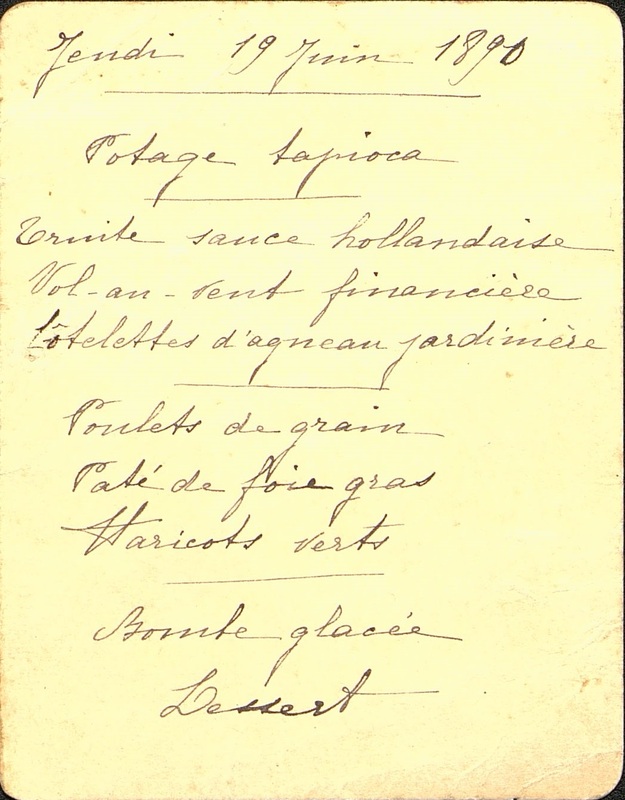 Jeudi 19 Juin 1890
Potage tapioca
Truite sauce hollandaise
Vol-au-vent financière
Côtelettes d'agneau jardinière
Poulets de grain
Paté de foie gras
Haricots verts
Bombe glacée
Dessert